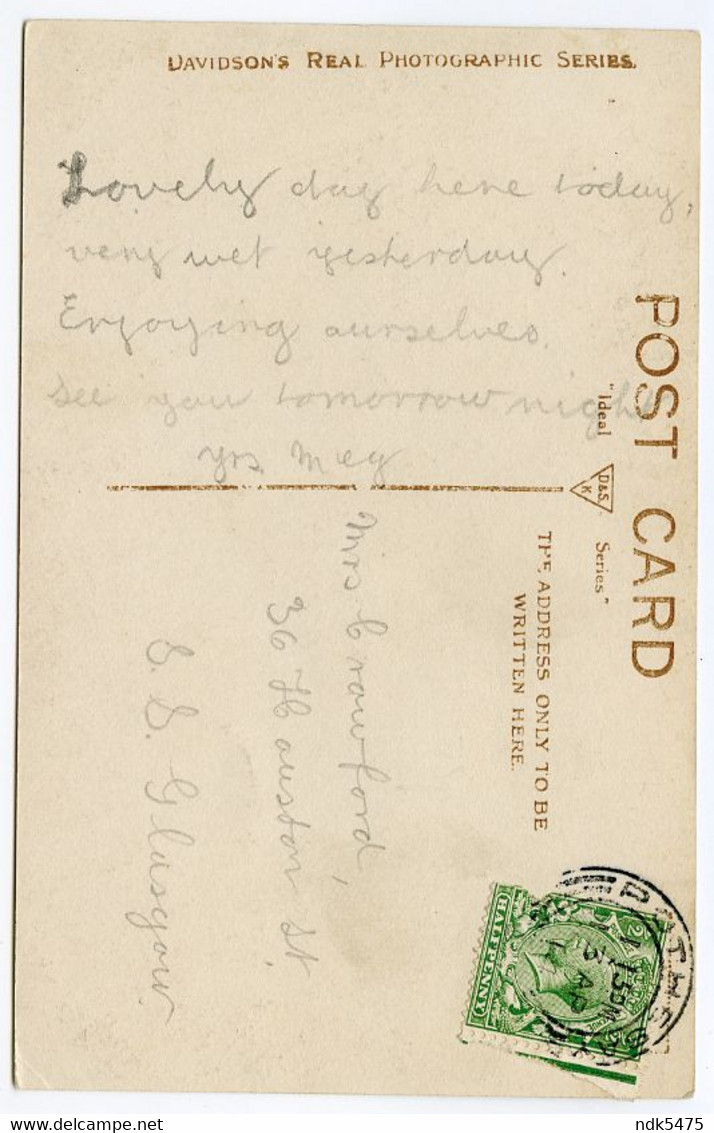 DAVIDSON'S REAL PHOTOGRAPHIC SERIES.
Lovely day here today,
very wet yesterday.
Enjoying ourselves.
See you tomorrow night
yrs Meg
POST CARD
"Ideal D&S. K Series"
THE ADDRESS ONLY TO BE
WRITTEN HERE.
Mrs Crawford,
36 Houston St,
S. S. Glasgow.
HALFPENNY
ROTHESAY
3 AP
ndk5475